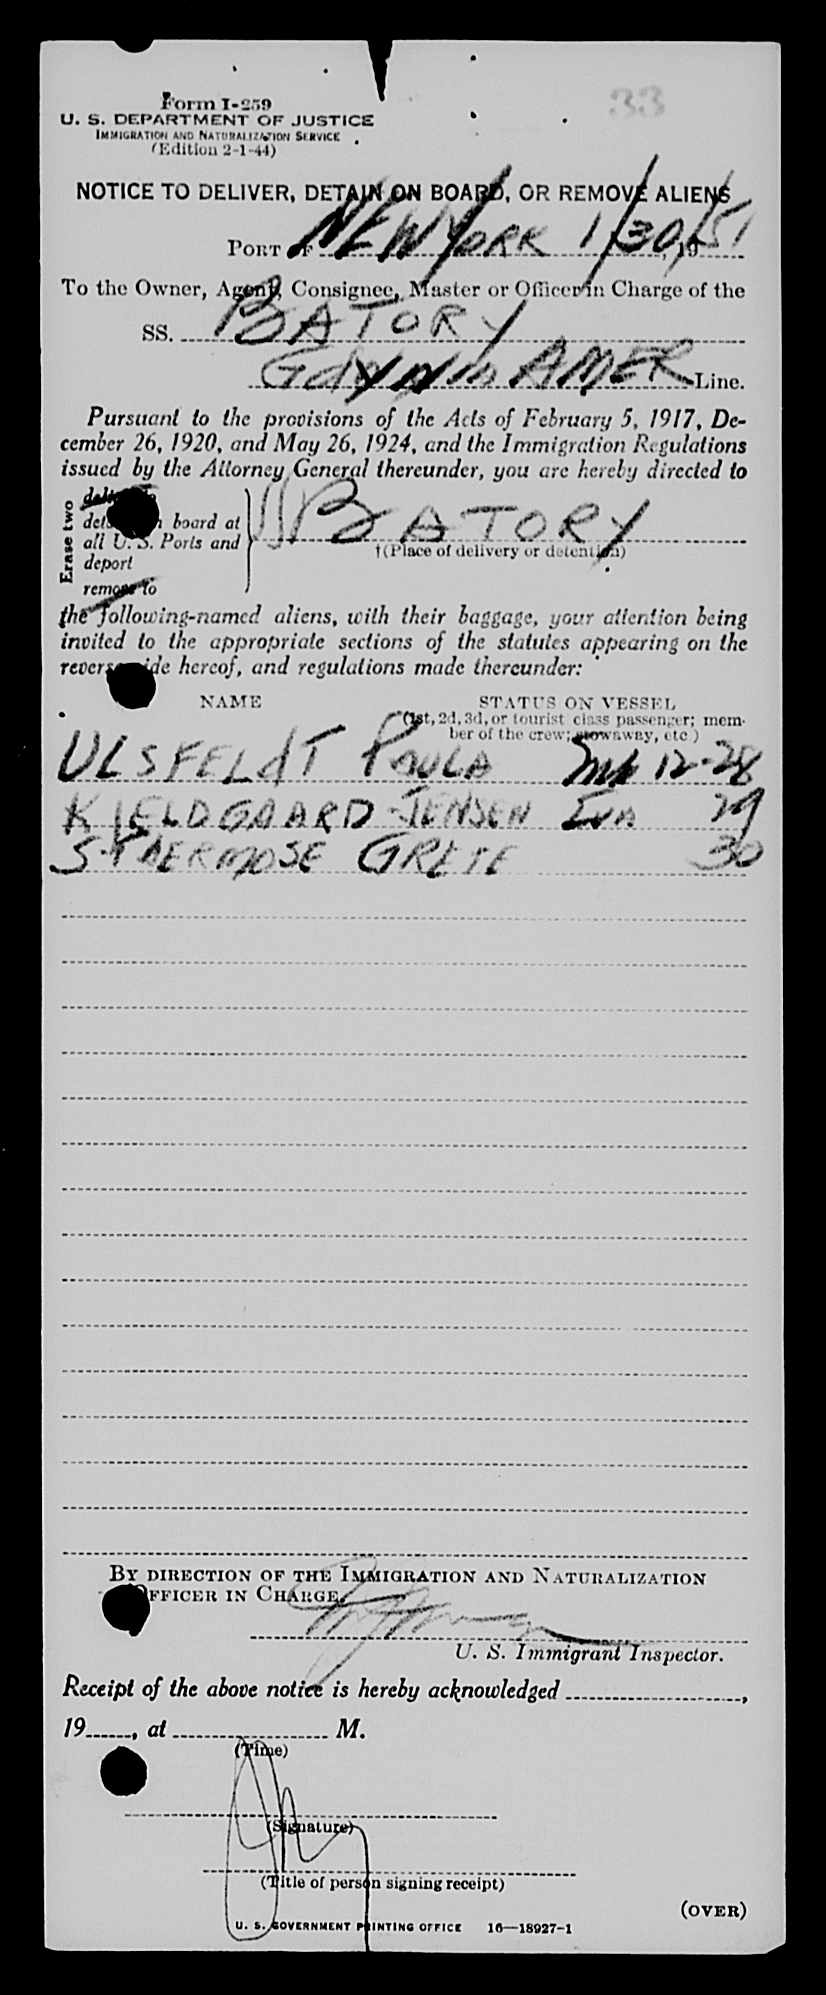 33
Form I-259
U. S. DEPARTMENT OF JUSTICE
IMMIGRATION AND NATURALIZATION SERVICE
(Edition 2-1-44)
NOTICE TO DELIVER, DETAIN ON BOARD, OR REMOVE ALIENS
PORT OF NEW YORK 1/30, 19/51
To the Owner, Agent, Consignee, Master or Officer in Charge of the
SS. BATORY
GDYNIA AMER Line.
Pursuant to the provisions of the Acts of February 5, 1917, De-
cember 26, 1920, and May 26, 1924, and the Immigration Regulations
issued by the Attorney General thereunder, you are hereby directed to
Erase two
deliver to
detain on board at
all U. S. Ports and
deport
remove to
SS BATORY
†(Place of delivery or detention)
the following-named aliens, with their baggage, your attention being
invited to the appropriate sections of the statutes appearing on the
reverse side hereof, and regulations made thereunder:
NAME
STATUS ON VESSEL
(1st, 2d, 3d, or tourist class passenger; mem-
ber of the crew; stowaway, etc.)
ULSFELDT PAULA 12-28
KJELDGAARD-JENSEN EVA 29
S-THERMOSE GRETE 30
BY DIRECTION OF THE IMMIGRATION AND NATURALIZATION
OFFICER IN CHARGE,
U. S. Immigrant Inspector.
Receipt of the above notice is hereby acknowledged
19 , at M.
(Time)
(Signature)
(Title of person signing receipt)
(OVER)
U. S. GOVERNMENT PRINTING OFFICE 16—18927-1